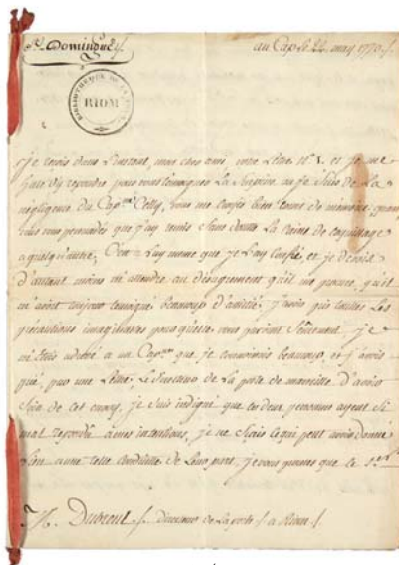 St. Domingue /.
au Cap le 24. may 1770 /.
BIBLIOTHEQUE DE LA VILLE
RIOM
Je reçois dans l'instant, mon cher ami votre lettre N.º 1. et je me
hate d'y repondre pour vous temoigner la surprise ou je suis de la
negligence du Cap.ne vous me bien de memoire
vous persuadés que j'ay remis sans doute la caisse de coquillage
a quelqu'autre. C'est a luy meme que je l'ay confié et je devois
d'autant moins m'attendre au desagrement qu'il me procure, qu'il
m'avoit toujour temoigné beaucoup d'amitié; j'avois pris toutes les
précautions imaginables pour qu'elle vous parvint sûrement. je
m'etois adressé a un Cap.ne que je connoissois beaucoup et j'avois
prié, par une Lettre, le Directeur de La poste de marseille d'avoir
soin de cet envoy, je suis indigné que ces deux personnes ayent si
mal repondu a mes intentions, je ne sçais ce qui peut avoir donné
lieu a une telle conduitte de leur part, je vous promets que le
M. Dubreul /. directeur de la poste /. a Riom /.